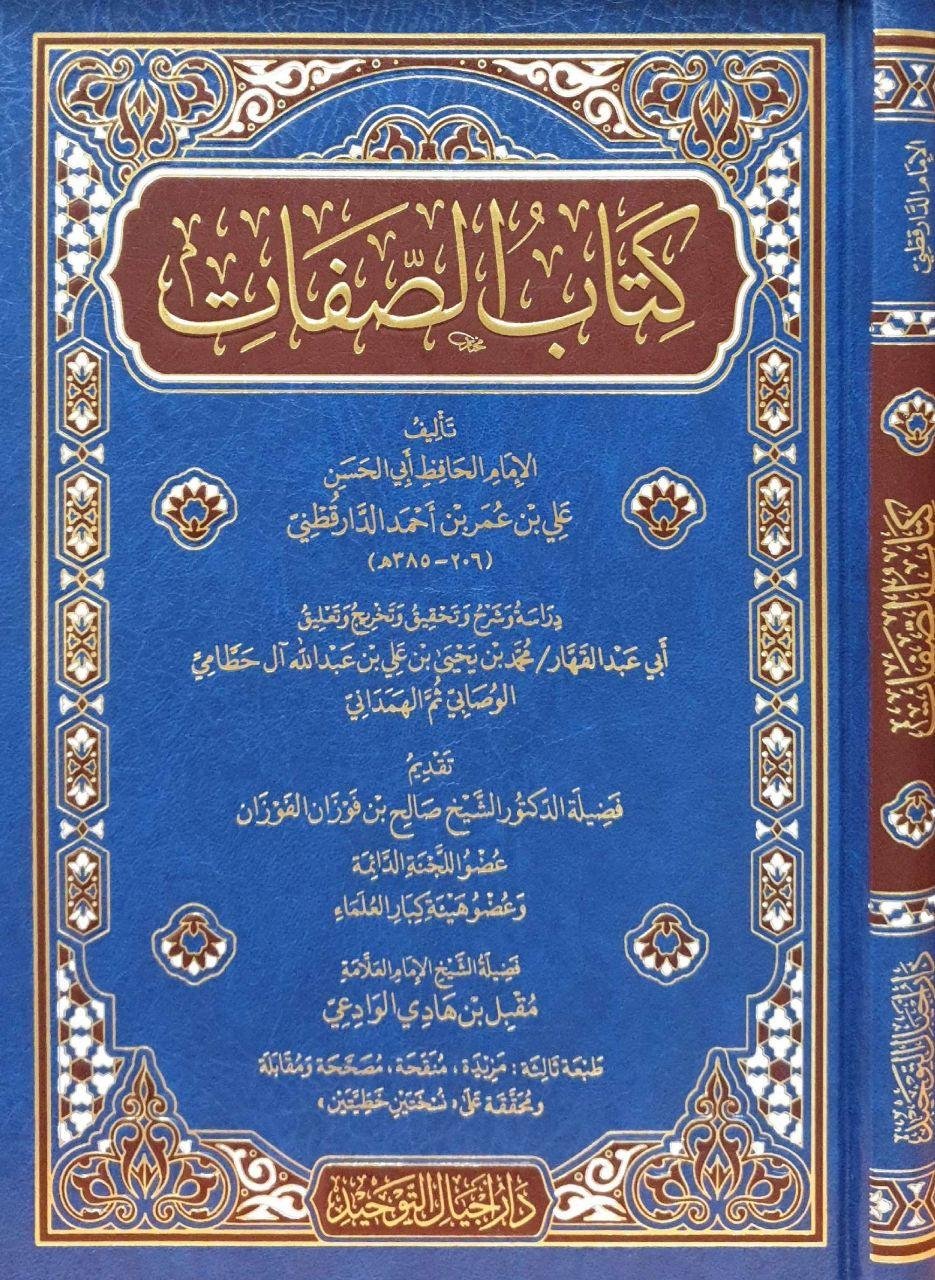 كِتَابُ الصِّفَاتِ
تَأْلِيفُ
الإِمَامِ الحَافِظِ أَبِي الحَسَنِ
عَلِي بْنِ عُمَرَ بْنِ أَحْمَدَ الدَّارَقُطْنِيّ
(٢٠٦ - ٣٨٥هـ)
دِرَاسَةُ وَشَرْحُ وَتَحْقِيقُ وَتَخْرِيجُ وَتَعْلِيقُ
أَبِي عَبْدِ القَهَّارِ / مُحَمَّد بْنِ يَحْيَى بْنِ عَلِي بْنِ عَبْدِ اللهِ آل حَطَّامِيّ
الوُصَابِيّ ثُمَّ الهَمْدَانِيّ
تَقْدِيمُ
فَضِيلَة الدّكتُور الشَّيْخ صَالِح بْن فَوْزَان الفَوْزَان
عُضْوُ اللَّجْنَةِ الدَّائِمَة
وَعُضْوُ هَيْئَةِ كِبَارِ العُلَمَاءِ
فَضِيلَةُ الشَّيْخِ الإِمَامِ العَلَّامَةِ
مُقْبِل بْن هَادِي الوَادِعِيّ
طَبْعَة ثَالِثَة : مَزِيْدَة ، مُنَقَّحَة ، مُصَحَّحَة وَمُقَابَلَة
وَمُحَقَّقَة عَلَى «نُسْخَتَيْنِ خَطِّيَّتَيْنِ»
دَارُ أَجْيَالِ التَّوْحِيدِ
الإِمَام الدَّارَقُطْنِيّ
كِتَابُ الصِّفَاتِ
دَارُ أَجْيَالِ التَّوْحِيدِ